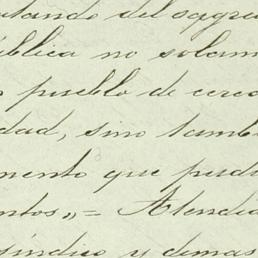 tando del sagra
ública no solam
pueblo de cerca
dad, sino tambi
mento que pudi
ntos,,= Atendie
síndico y demas